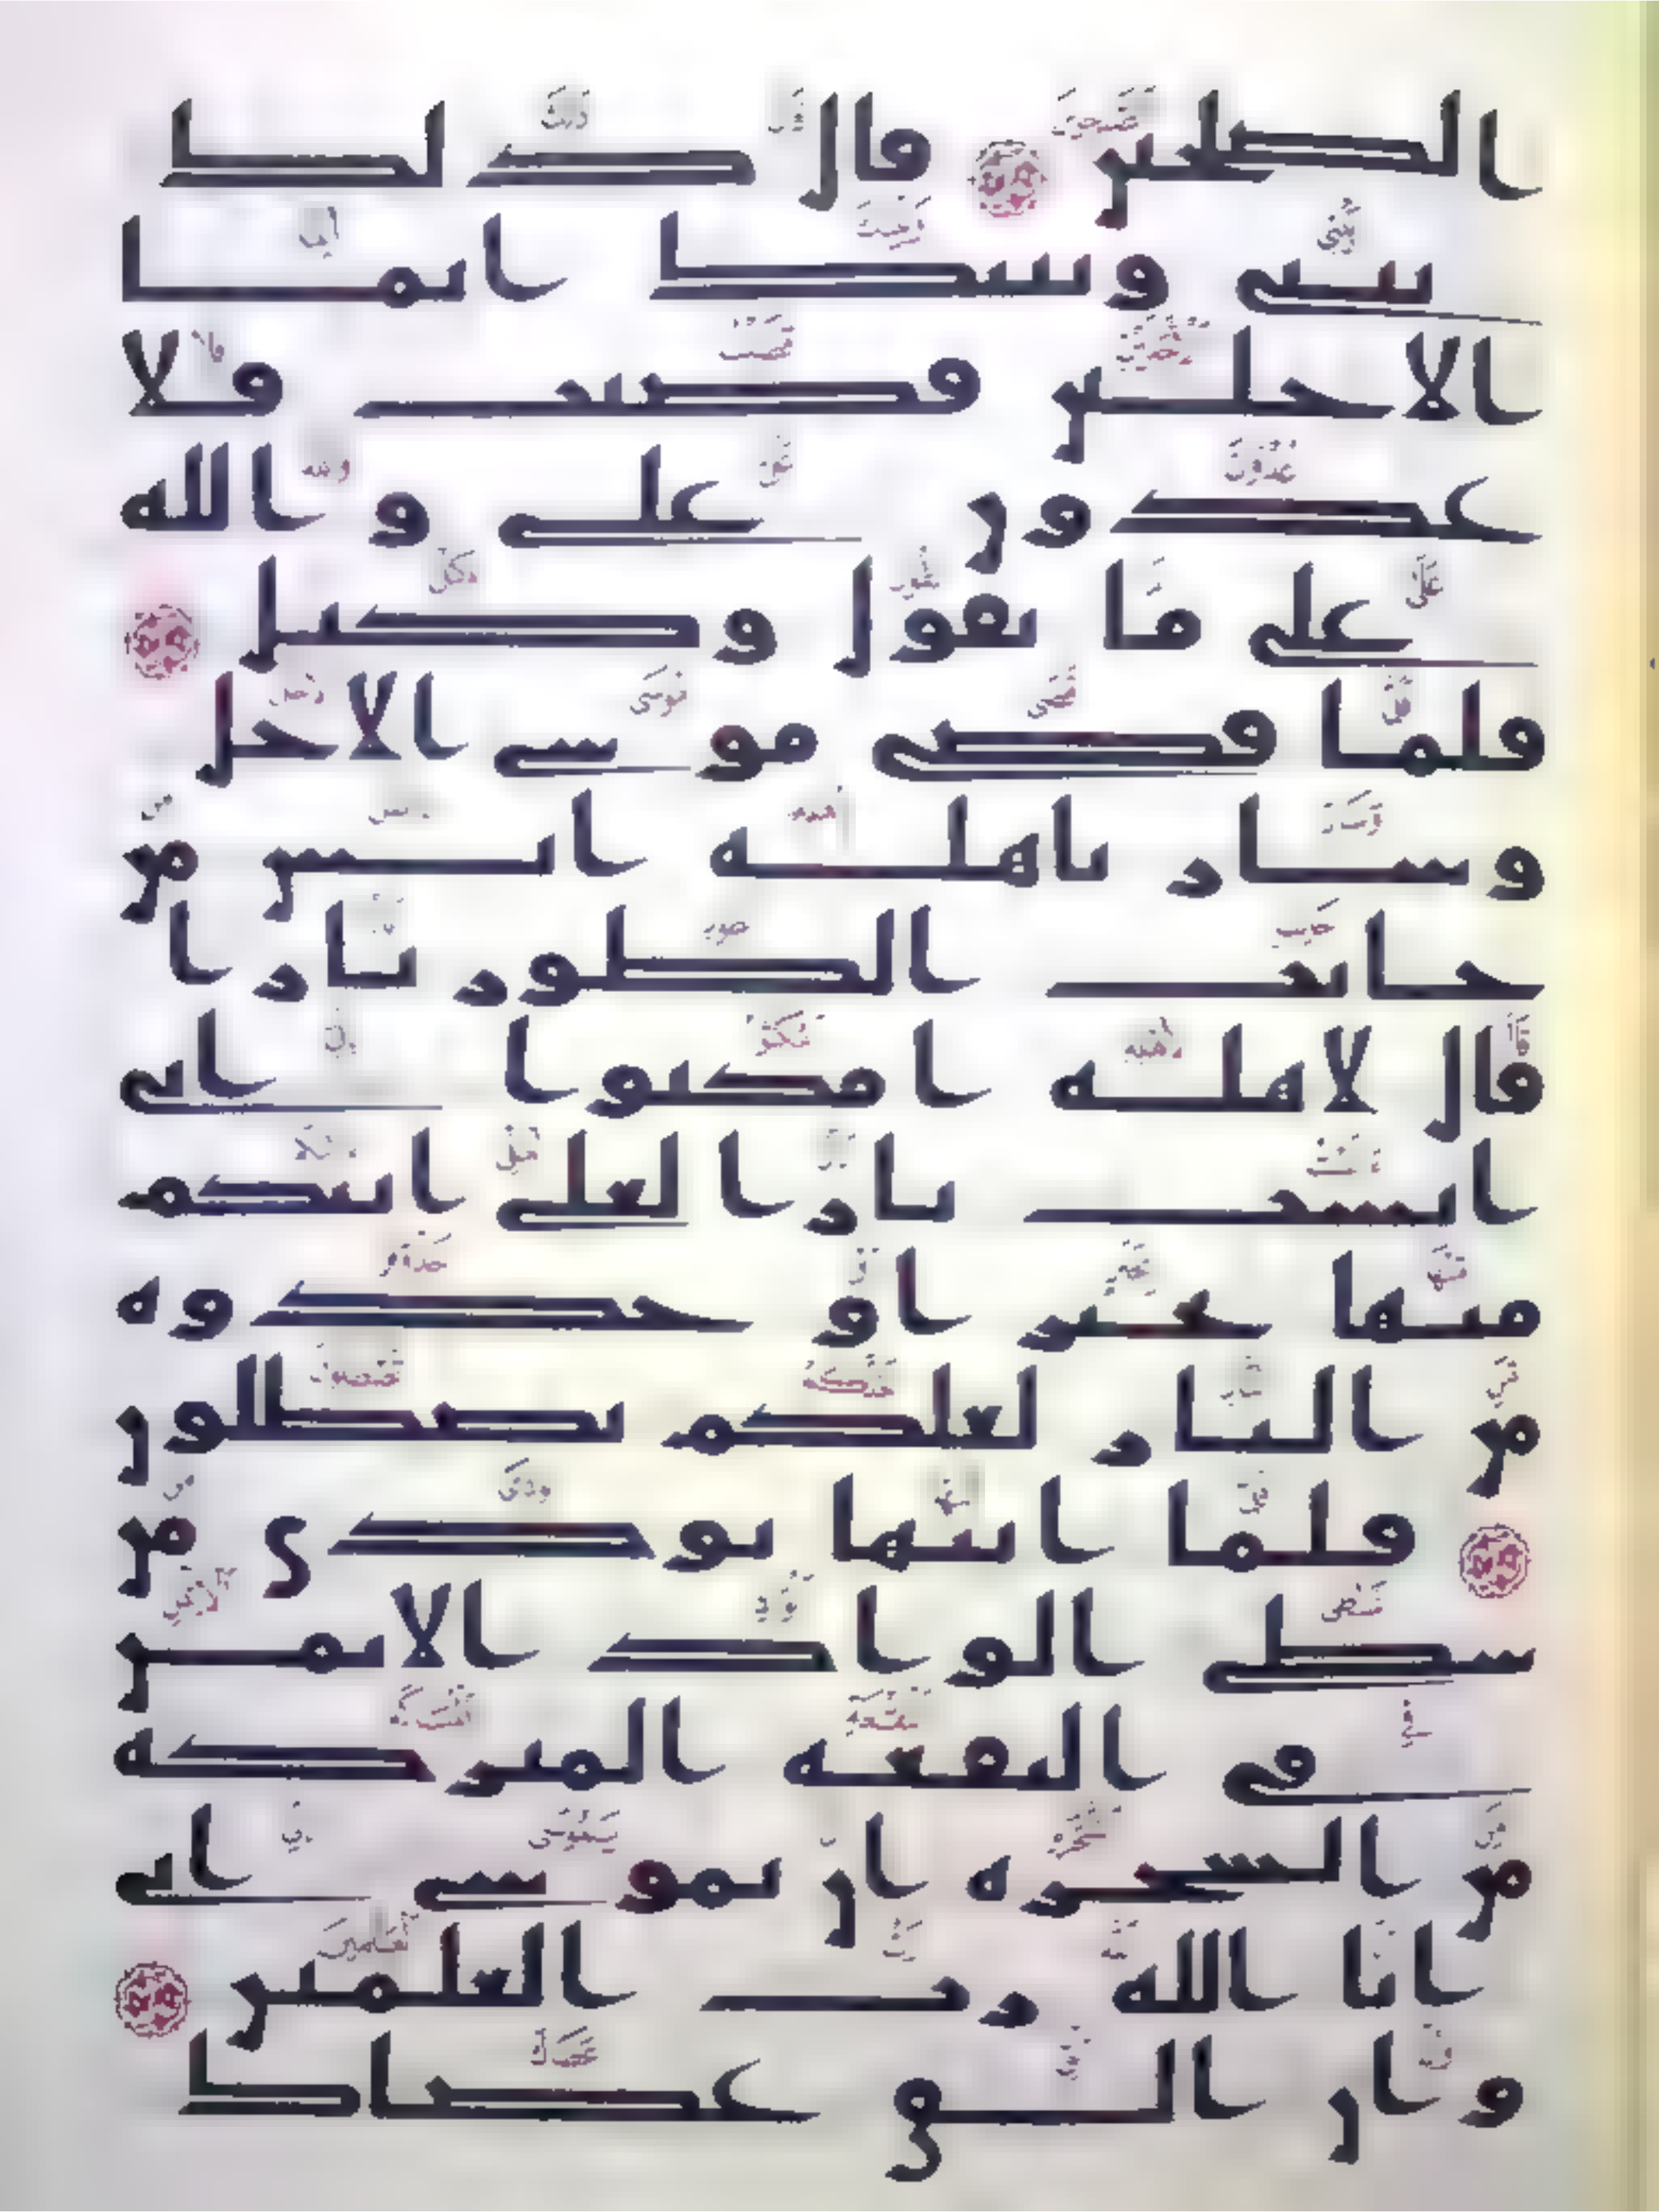 الصلحين قال ذلك
بيني وبينك ايما
الاجلين قضيت فلا
عدون علي والله
على ما نقول وكيل
فلما قضى موسى الاجل
وسار باهله انس من
جانب الطور نارا
قال لاهله امكثوا اني
انست نارا لعلي اتيكم
منها بخبر او جذوه
من النار لعلكم تصطلون
فلما اتيها نودي من
شطي الواد الايمن
في البقعه المبركه
من الشجره ان يموسى اني
انا الله رب العلمين
وان الق عصاك